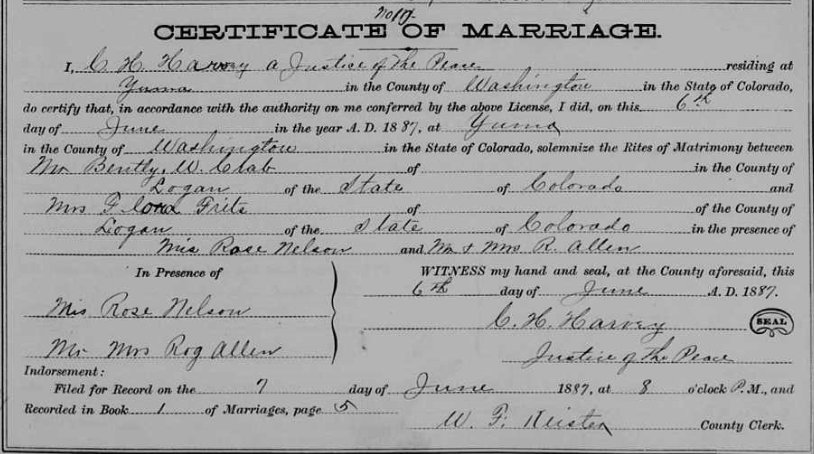 No 19
CERTIFICATE OF MARRIAGE.
I, C H Harvey a Justice of the Peace residing at
Yuma in the County of Washington in the State of Colorado,
do certify that, in accordance with the authority on me conferred by the above License, I did, on this 6th
day of June in the year A. D. 1887, at Yuma
in the County of Washington in the State of Colorado, solemnize the Rites of Matrimony between
Mr Bently. W. Crab of in the County of
Logan of the State of Colorado and
Mrs Flora Frits of of the County of
Logan of the State of Colorado in the presence of
Mis Rose Nelson and Mr & Mrs R. Allen
In Presence of
Mis Rose Nelson
Mr Mrs Rog Allen
WITNESS my hand and seal, at the County aforesaid, this
6th day of June A. D. 1887.
C. H. Harvey SEAL
Justice of the Peace
Indorsement:
Filed for Record on the 7 day of June 1887, at 8 o'clock P. M., and
Recorded in Book 1 of Marriages, page 5
W. F. Keister County Clerk.